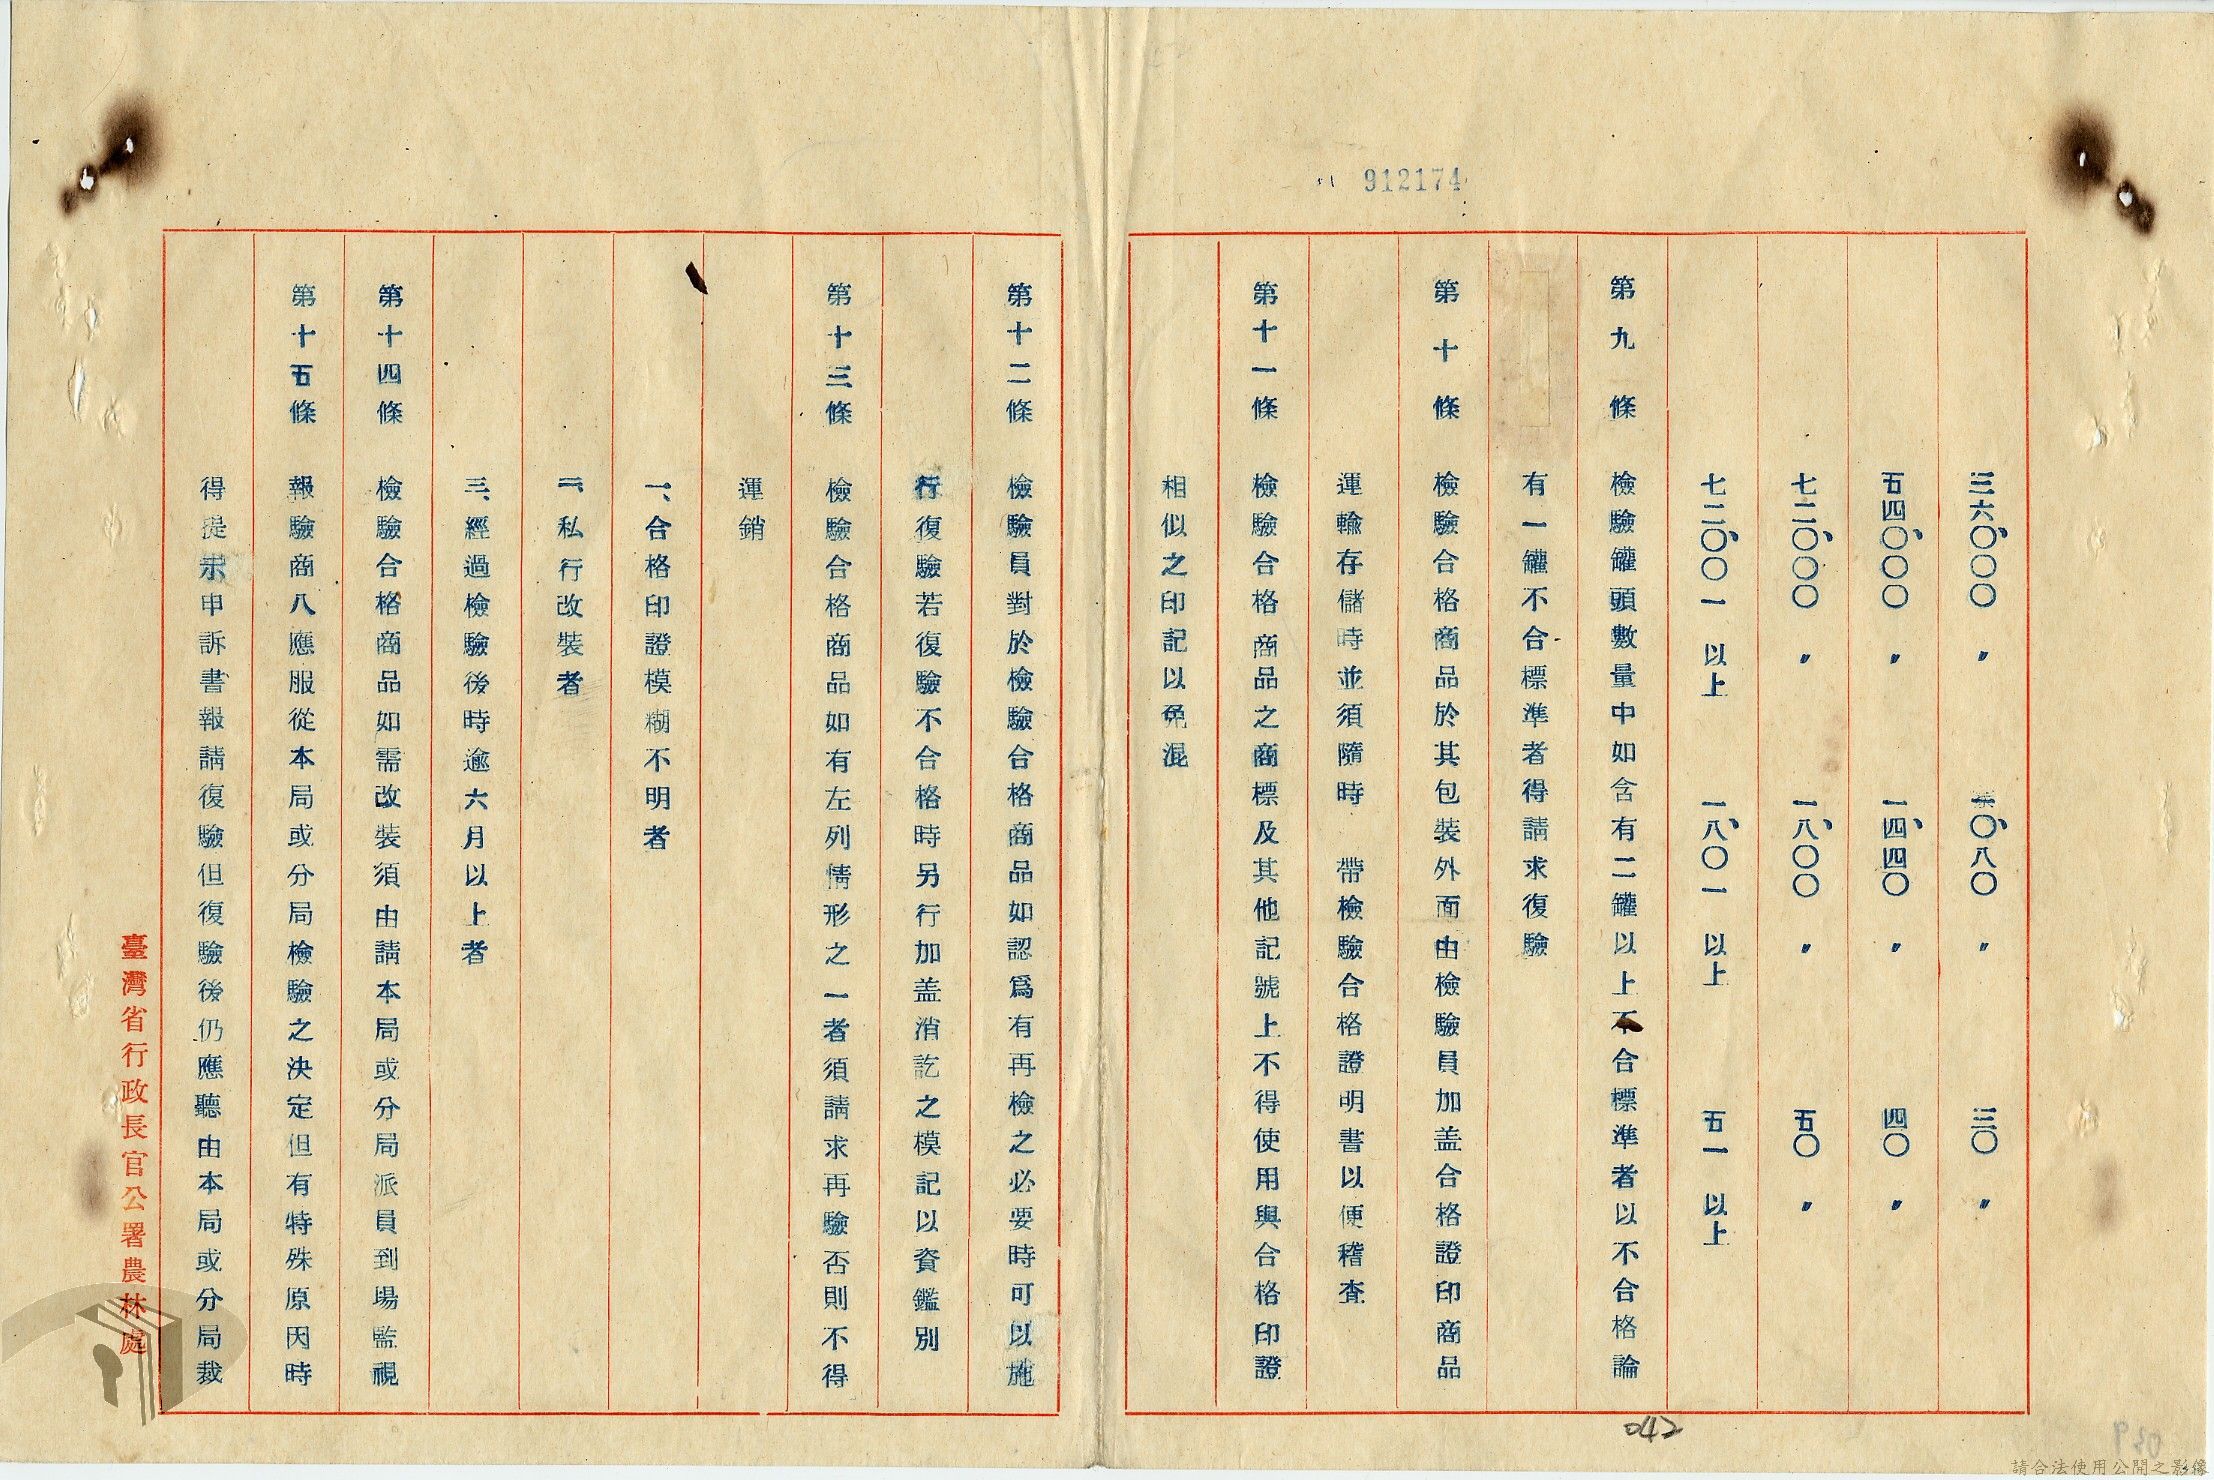 912174
三六、〇〇〇 〃 一〇、八〇 〃 三〇 〃
五四、〇〇〇 〃 一、四四〇 〃 四〇 〃
七二、〇〇〇 〃 一、八〇〇 〃 五〇 〃
七二、〇〇一 以上 一、八〇一 以上 五一 以上
第九條 檢驗罐頭數量中如含有二罐以上不合標準者以不合格論
有一罐不合標準者得請求復驗
第十條 檢驗合格商品於其包裝外面由檢驗員加盖合格證印商品
運輸存儲時並須隨時 帶檢驗合格證明書以便稽查
第十一條 檢驗合格商品之商標及其他記號上不得使用與合格印證
相似之印記以免混
第十二條 檢驗員對於檢驗合格商品如認爲有再檢之必要時可以施
行復驗若復驗不合格時另行加盖消訖之模記以資鑑別
第十三條 檢驗合格商品如有左列情形之一者須請求再驗否則不得
運銷
一、合格印證模糊不明者
二、私行改裝者
三、經過檢驗後時逾六月以上者
第十四條 檢驗合格商品如需改裝須由請本局或分局派員到場監視
第十五條 報驗商人應服從本局或分局檢驗之決定但有特殊原因時
得提示申訴書報請復驗但復驗後仍應聽由本局或分局裁
臺灣省行政長官公署農林處
042
請合法使用公開之影像